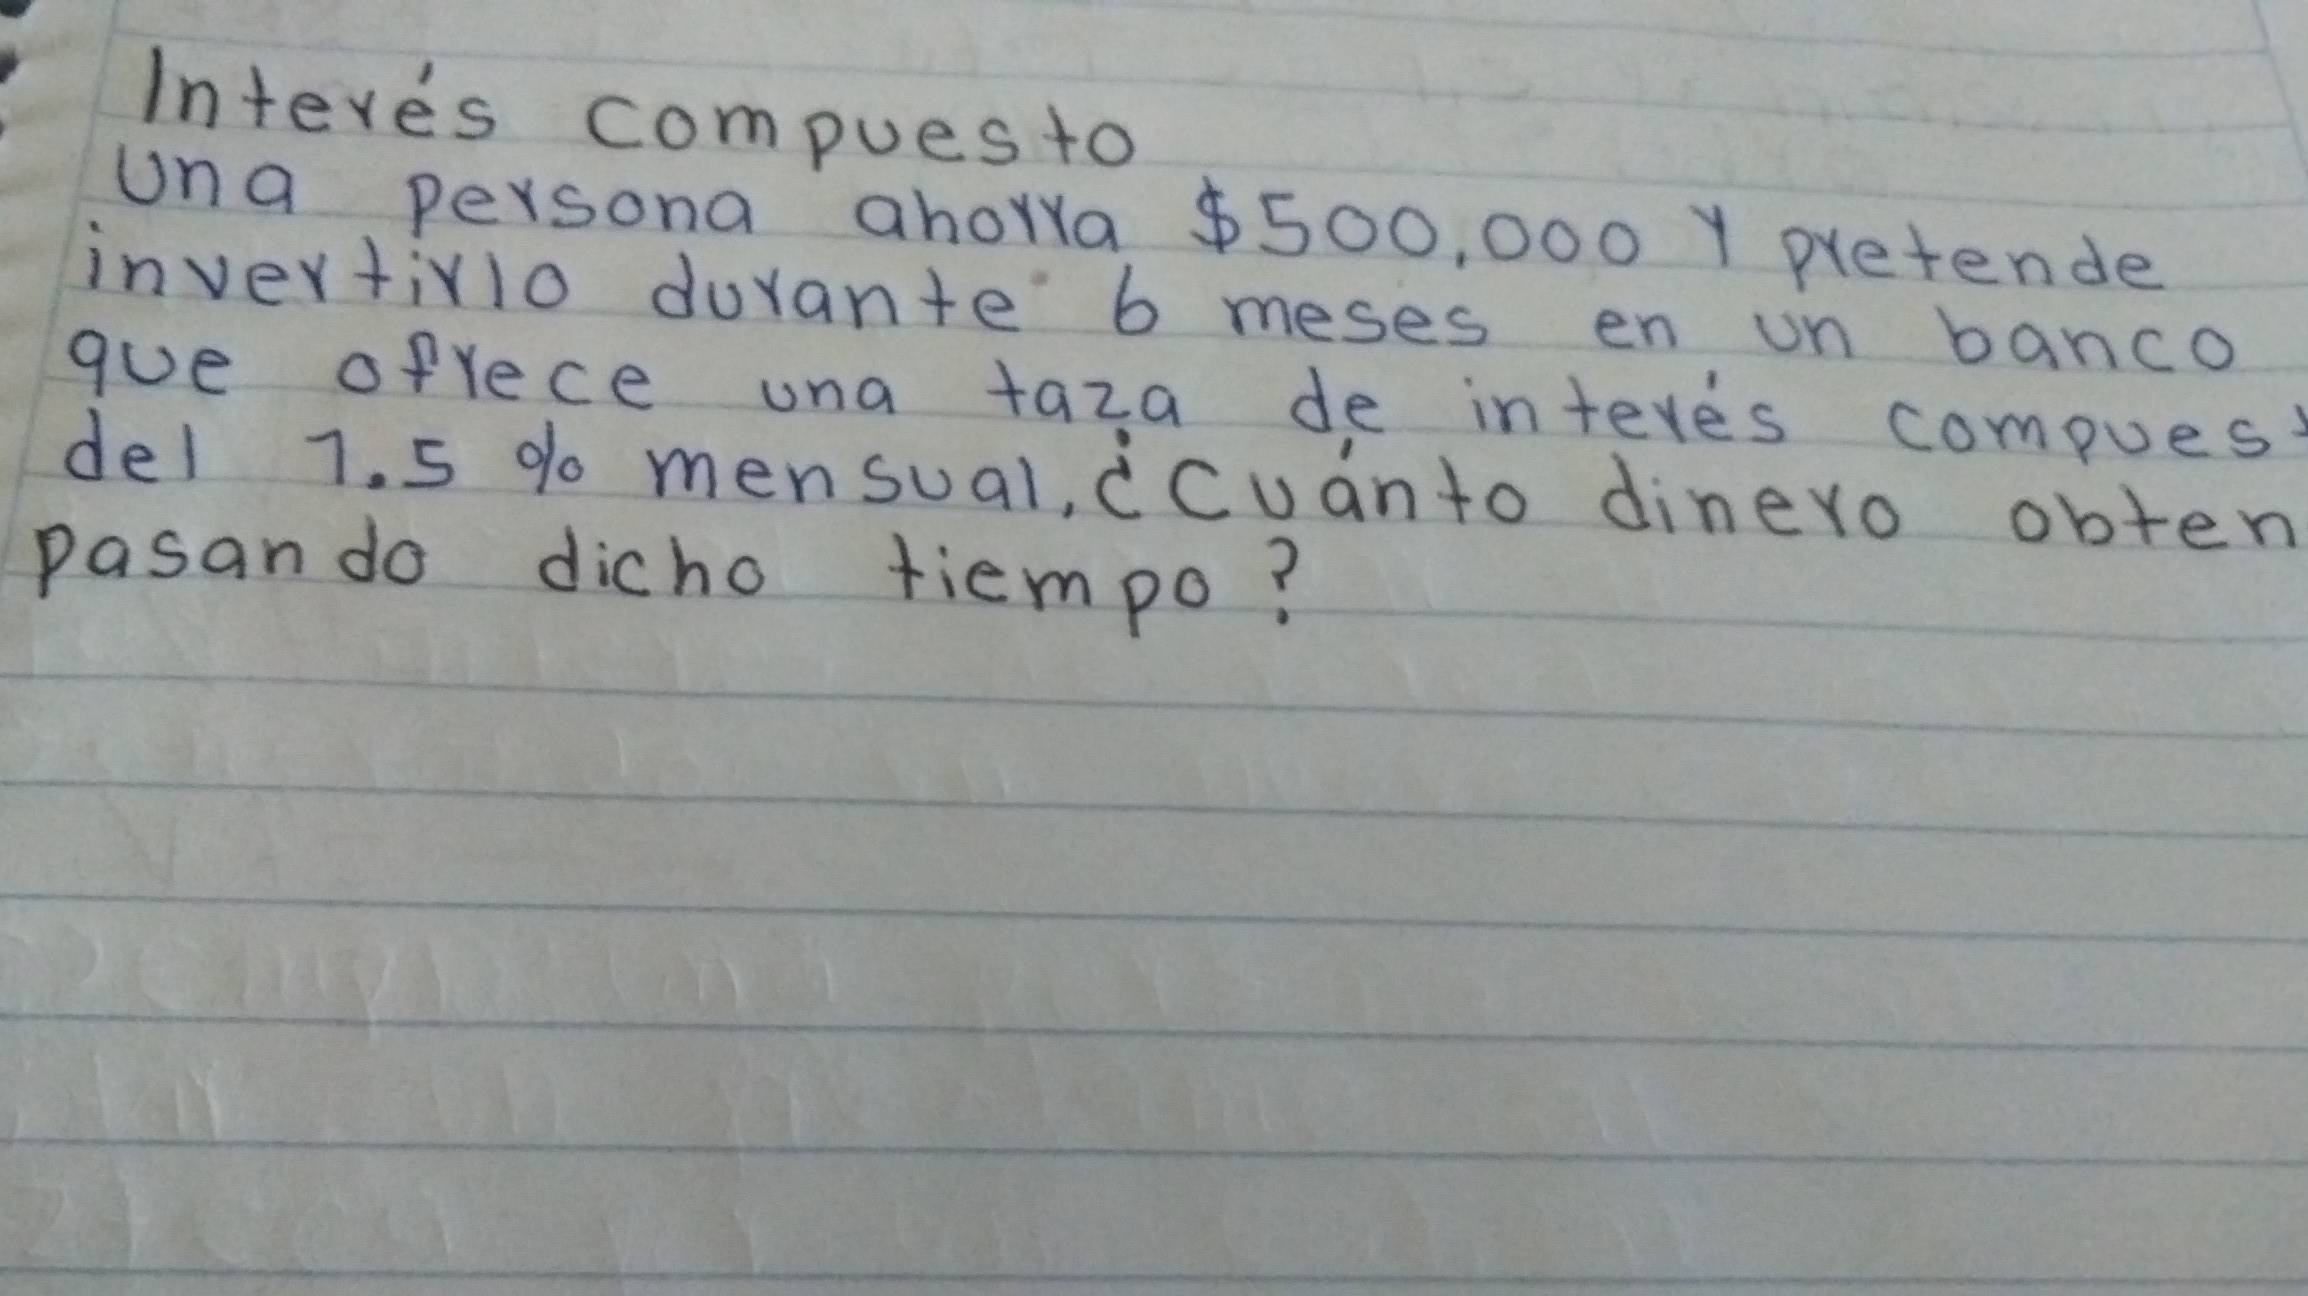 Interés compuesto
una persona ahorra $500,000 y pretende
invertirlo durante 6 meses en un banco
que ofrece una taza de interés compuest
del 1.5 % mensual, ¿Cuánto dinero obten
pasando dicho tiempo?